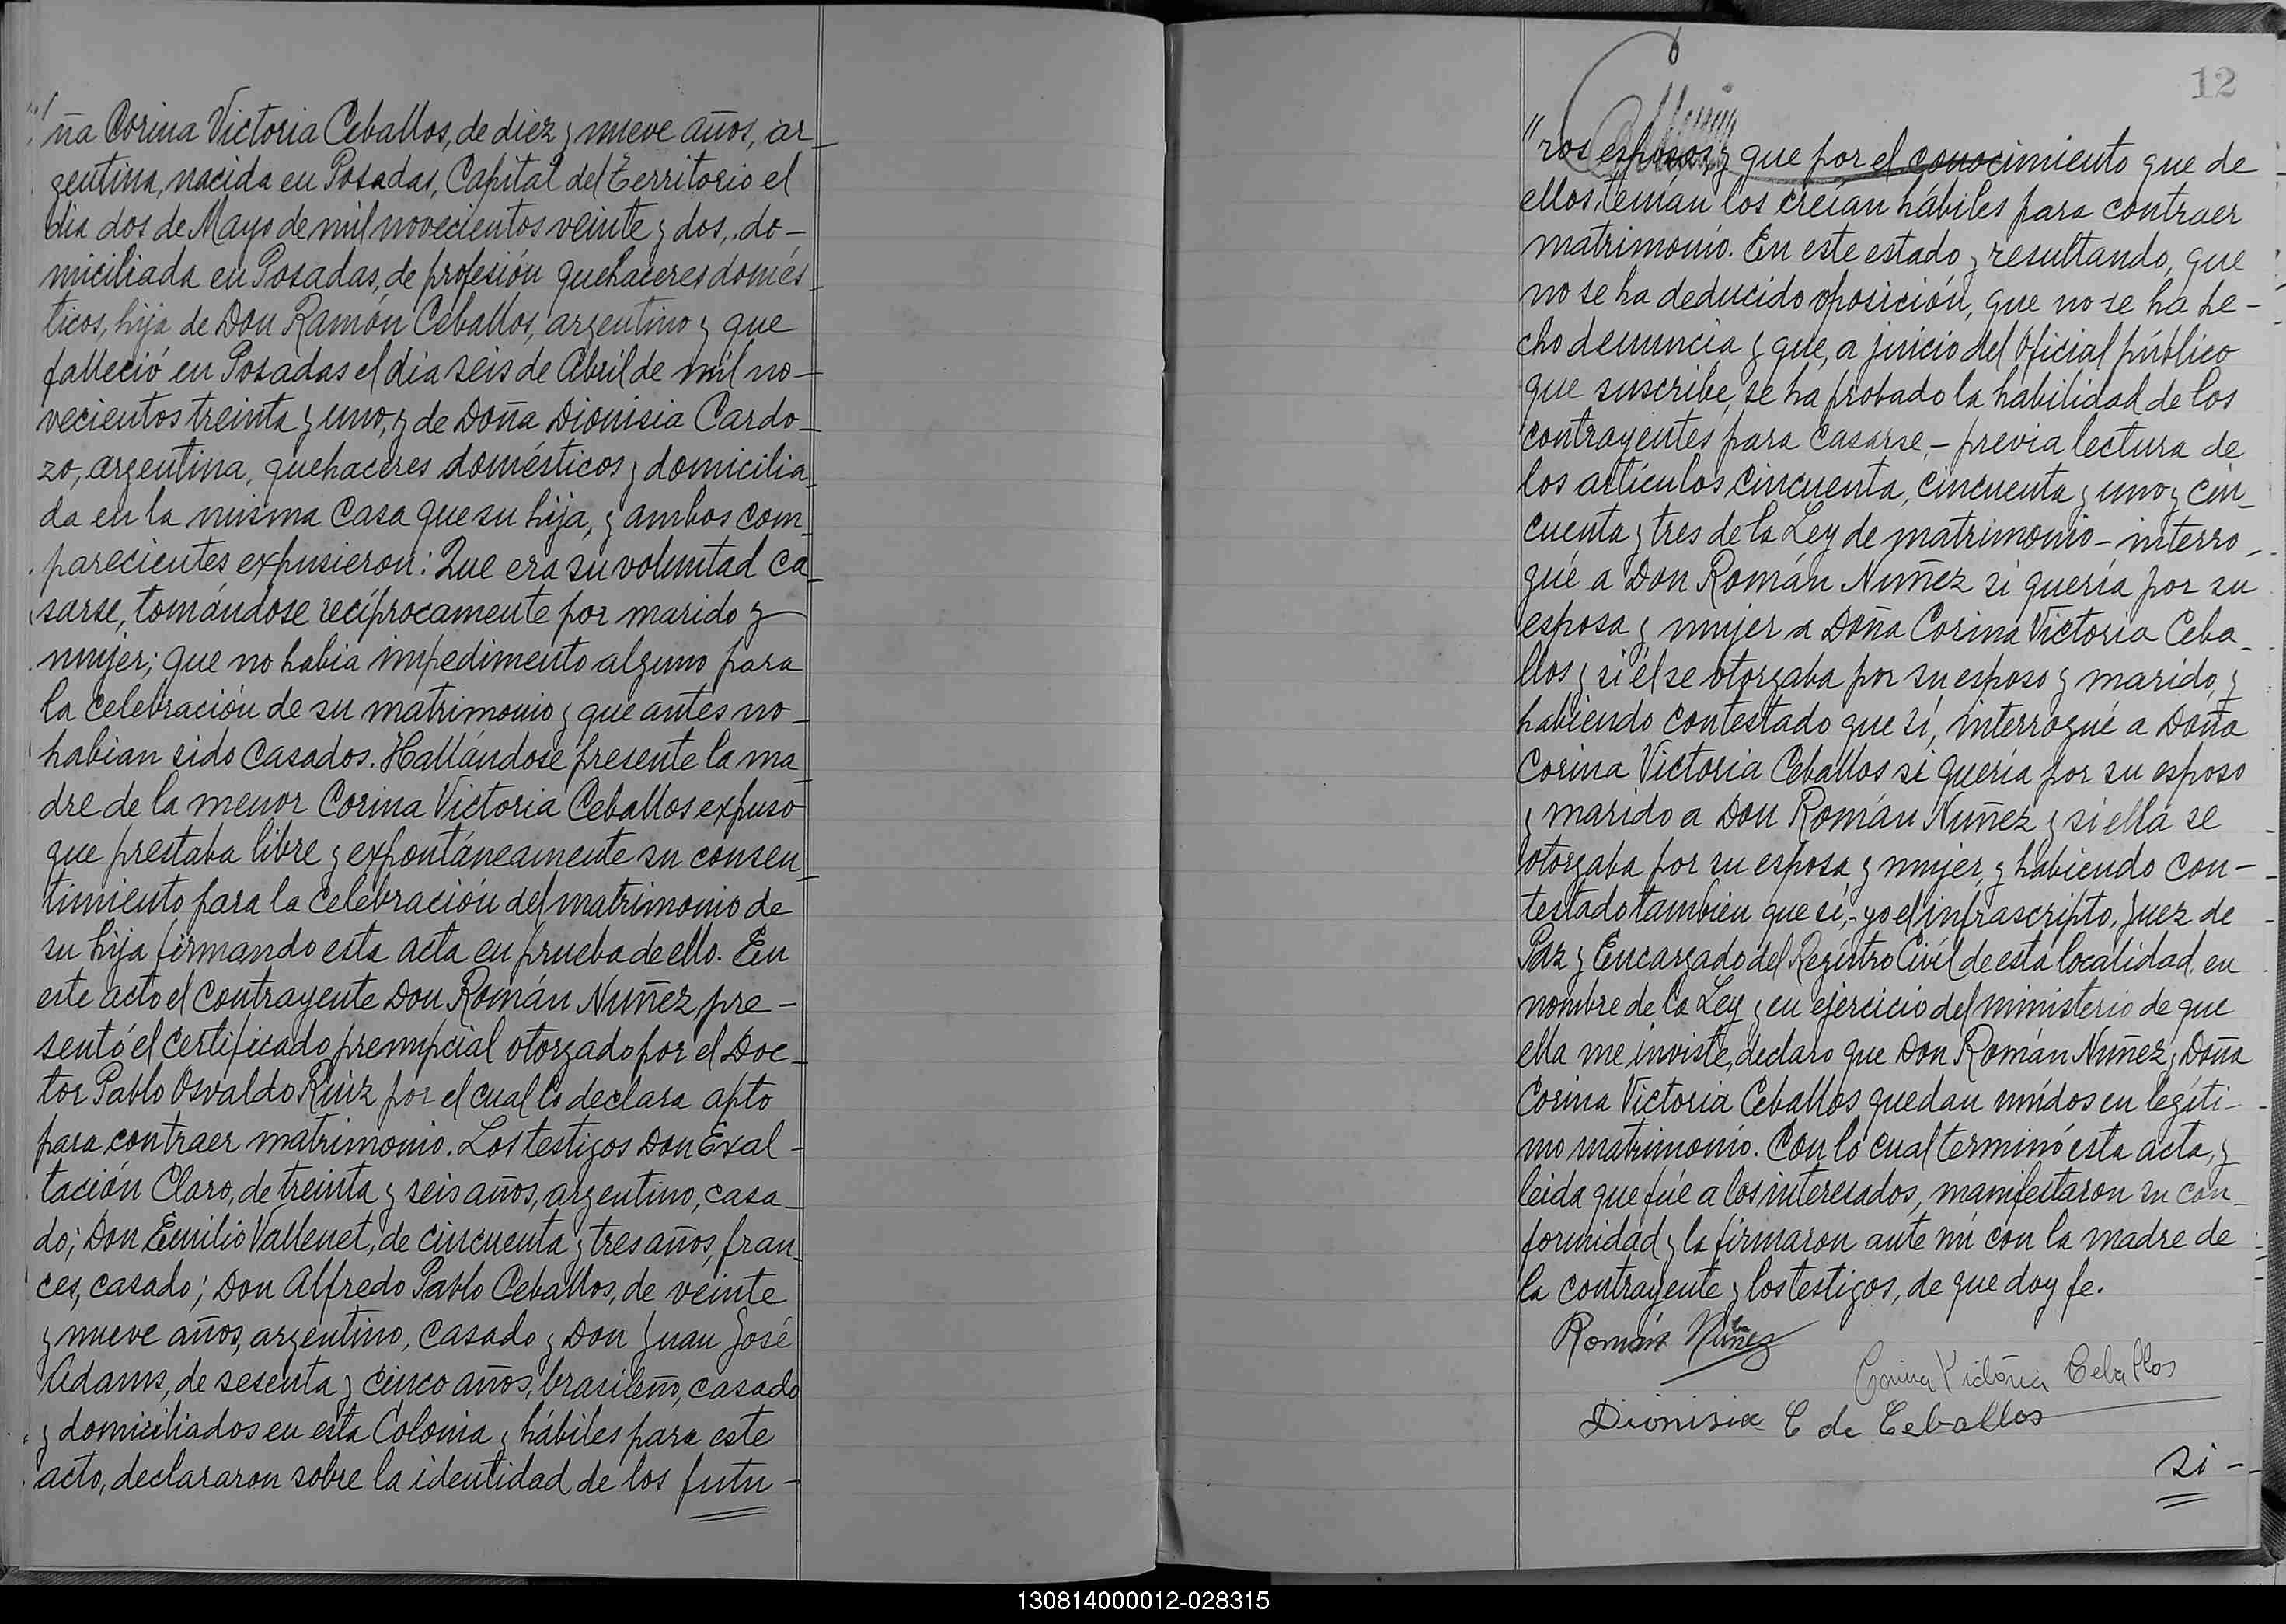 "ña Corina Victoria Ceballos, de diez y nueve años, ar-
gentina, nacida en Posadas, Capital del Territorio el
dia dos de Mayo de mil novecientos veinte y dos, do-
miciliada en Posadas, de profesión quehaceres domés-
ticos, hija de Don Ramón Ceballos, argentino y que
falleció en Posadas el dia seis de Abril de mil no-
vecientos treinta y uno, y de Doña Dionisia Cardo-
zo, argentina, quehaceres domésticos y domicilia-
da en la misma casa que su hija, y ambos com-
parecientes expusieron: Que era su voluntad ca-
sarse, tomándose recíprocamente por marido y
mujer; que no habia impedimento alguno para
la celebración de su matrimonio y que antes no-
habian sido casados. Hallándose presente la ma-
dre de la menor Corina Victoria Ceballos expuso
que prestaba libre y expontáneamente su consen-
timiento para la celebración del matrimonio de
su hija firmando esta acta en prueba de ello. En
este acto el contrayente Don Román Nuñez, pre-
sentó el certificado prenupcial otorgado por el Doc-
tor Pablo Osvaldo Ruiz por el cual lo declara apto
para contraer matrimonio. Los testigos Don Exal-
tación Claro, de treinta y seis años, argentino, casa-
do; Don Emilio Vallenet, de cincuenta y tres años, fran-
ces, casado; Don Alfredo Pablo Ceballos, de veinte
y nueve años, argentino, casado y Don Juan José
Adams, de sesenta y cinco años, brasileño, casado
y domiciliados en esta Colonia y hábiles para este
acto, declararon sobre la identidad de los futu-
12
"ros esposos y que por el conocimiento que de
ellos tenían los creían hábiles para contraer
matrimonio. En este estado y resultando, que
no se ha deducido oposición, que no se ha he-
cho denuncia y que, a juicio del Oficial público
que suscribe, se ha probado la habilidad de los
contrayentes para casarse,- previa lectura de
los artículos cincuenta, cincuenta y uno y cin-
cuenta y tres de la Ley de matrimonio - interro-
gué a Don Román Nuñez si quería por su
esposa y mujer a Doña Corina Victoria Ceba-
llos y si él se otorgaba por su esposo y marido, y
habiendo contestado que sí, interrogué a Doña
Corina Victoria Ceballos si quería por su esposo
y marido a Don Román Nuñez y si ella se
otorgaba por su esposa y mujer, y habiendo con-
testado también que sí,- yo el infrascripto, Juez de
Paz y Encargado del Registro Civil de esta localidad, en
nombre de la Ley y en ejercicio del ministerio de que
ella me inviste, declaro que Don Román Nuñez y Doña
Corina Victoria Ceballos quedan unidos en legíti-
mo matrimonio. Con lo cual terminó esta acta, y
leida que fué a los interesados, manifestaron su con-
formidad y la firmaron ante mi con la madre de
la contrayente y los testigos, de que doy fe.
Román Nuñez
Corina Victoria Ceballos
Dionisia C de Ceballos
si-
130814000012-028315